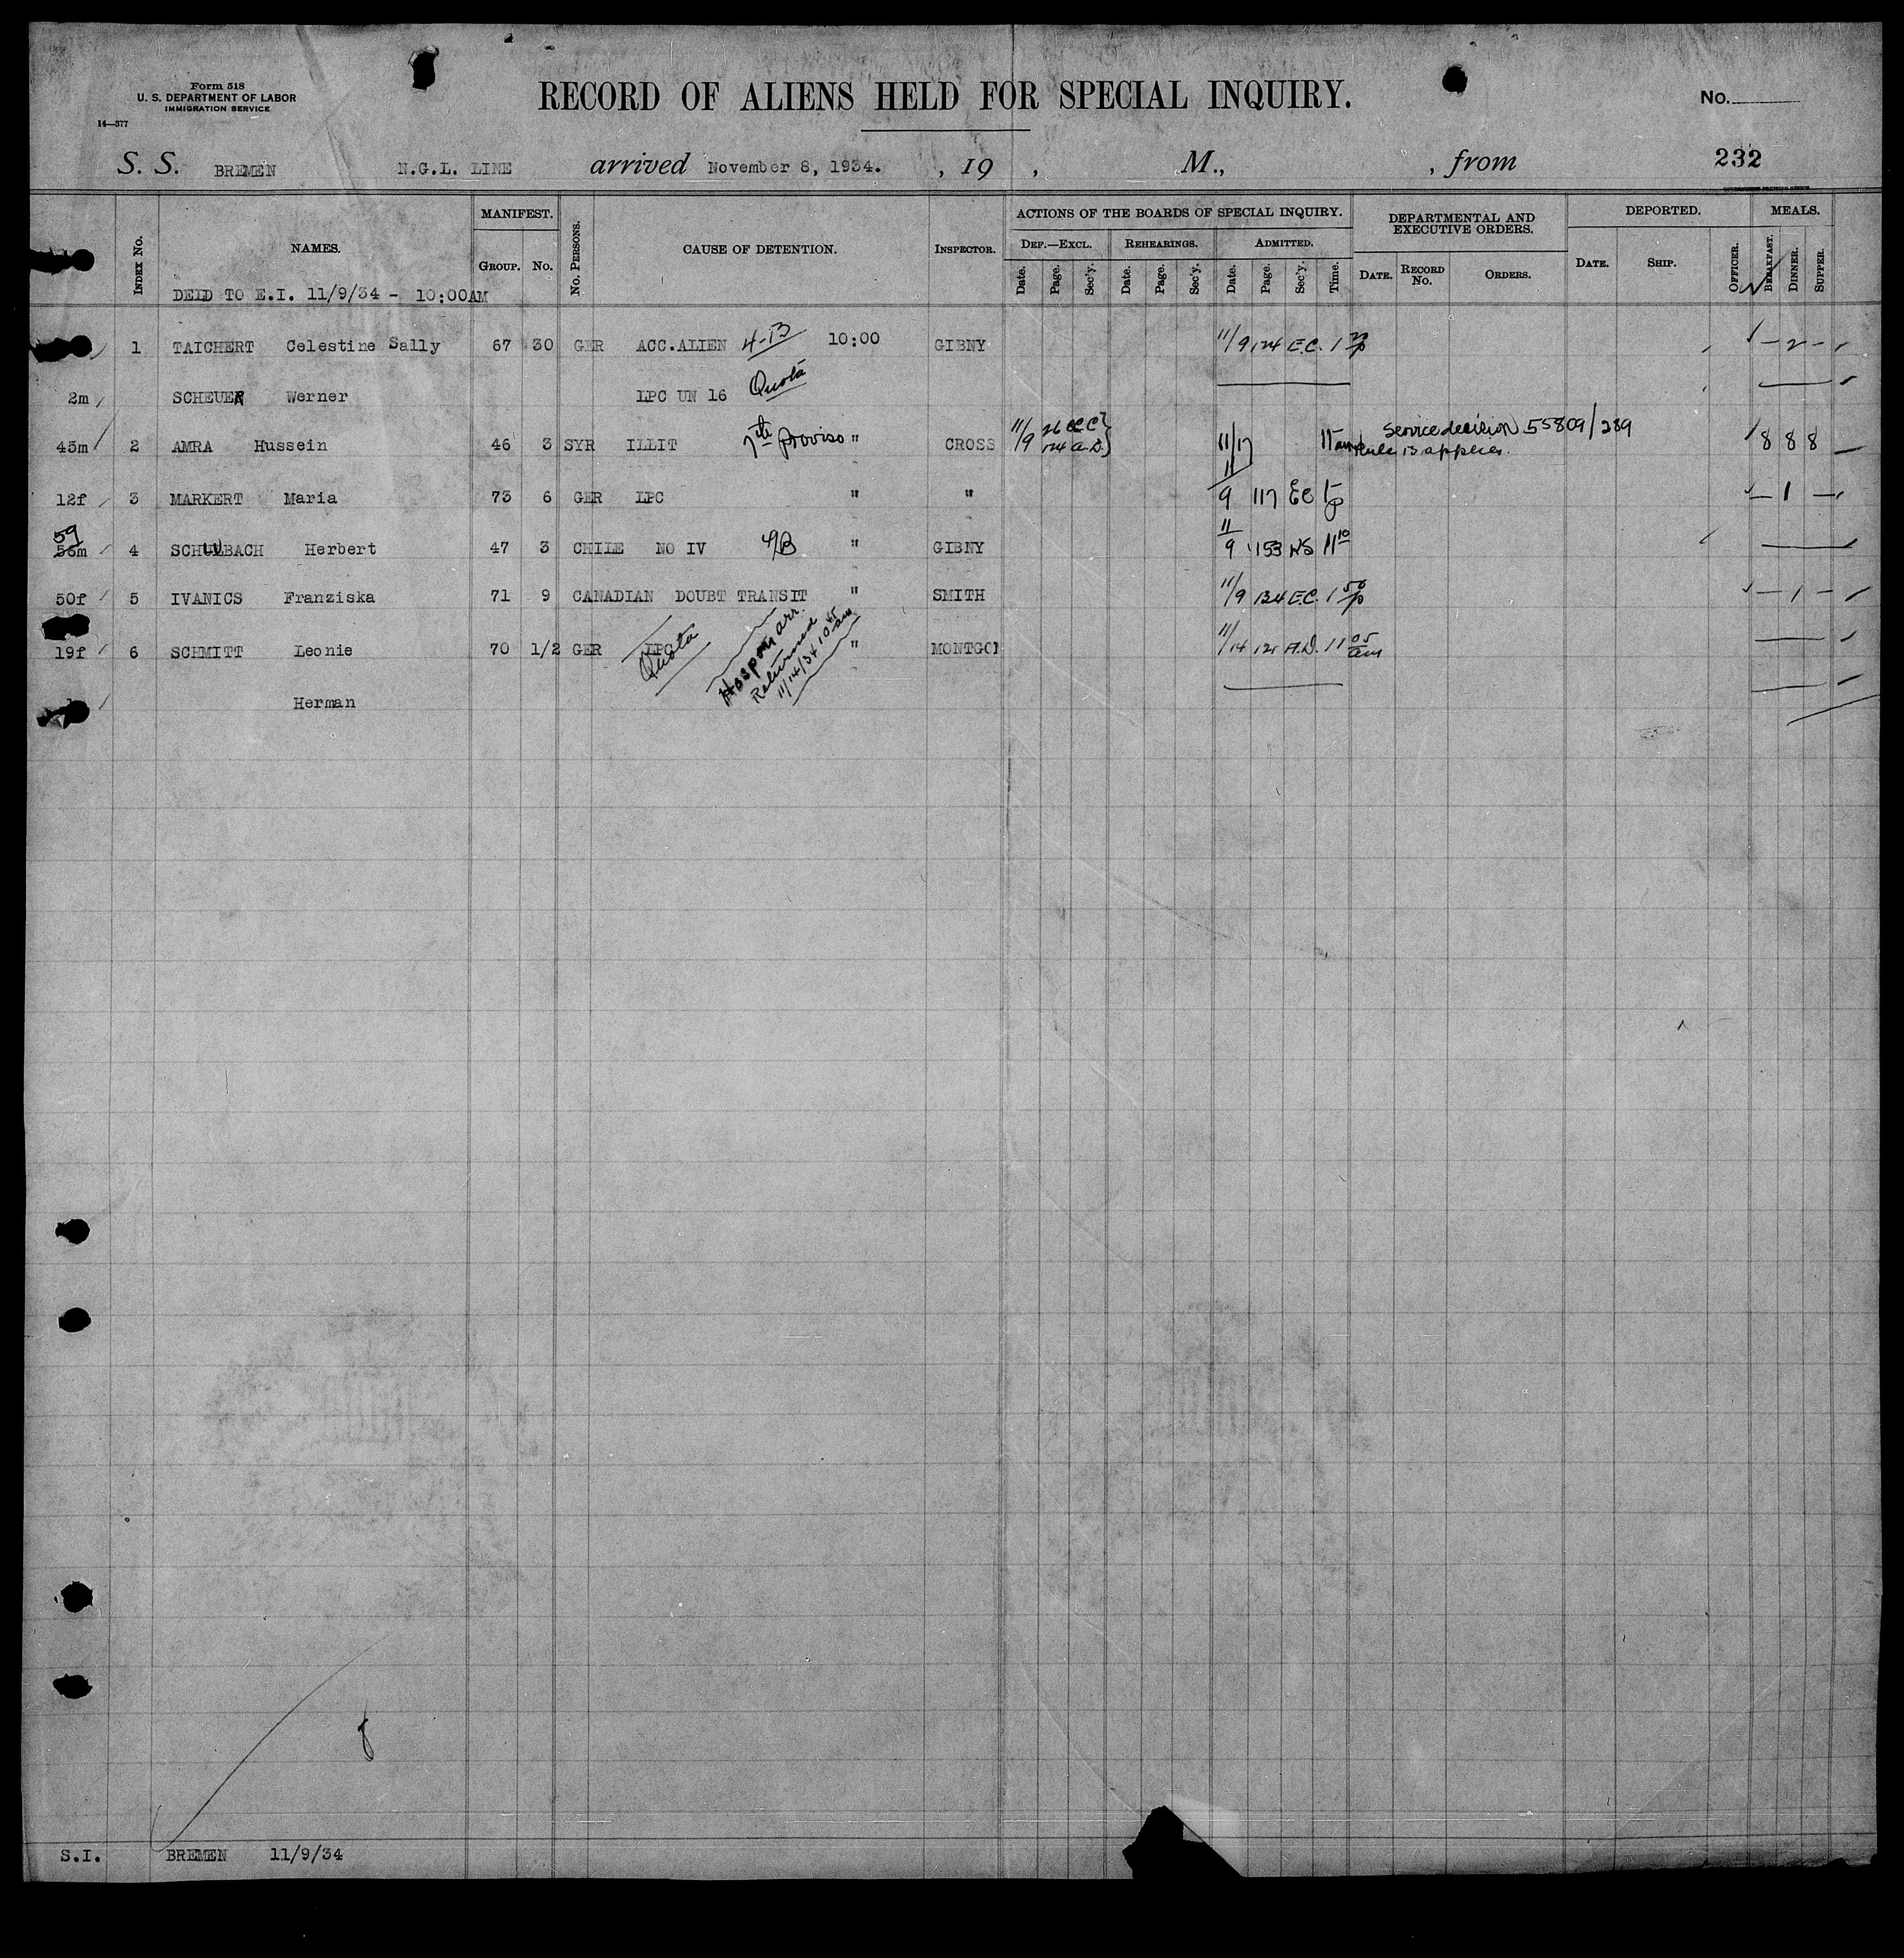 Form 518
U. S. DEPARTMENT OF LABOR
IMMIGRATION SERVICE
14—377
RECORD OF ALIENS HELD FOR SPECIAL INQUIRY.
No.
S. S. BREMEN N.G.L. LINE arrived November 8, 1934. , 19 , M., , from 232
GOVERNMENT PRINTING OFFICE
INDEX No. NAMES. MANIFEST. GROUP. No. No. PERSONS. CAUSE OF DETENTION. INSPECTOR. ACTIONS OF THE BOARDS OF SPECIAL INQUIRY. DEF.—EXCL. Date. Page. Sec'y. REHEARINGS. Date. Page. Sec'y. ADMITTED. Date. Page. Sec'y. Time. DEPARTMENTAL AND EXECUTIVE ORDERS. DATE. RECORD No. ORDERS. DEPORTED. DATE. SHIP. OFFICER. MEALS. BREAKFAST. DINNER. SUPPER.
DELD TO E.I. 11/9/34 - 10:00AM
1 TAICHERT Celestine Sally 67 30 GER ACC.ALIEN 4-B 10:00 GIBNY 11/9 124 E.C. 1 p — 2 —
2m SCHEUER Werner LPC UN 16 Quota
45m 2 AMRA Hussein 46 3 SYR ILLIT 7th proviso " CROSS 11/9 26 174 A.D. 11/17 11 am Service decision 55809/289 Rule 13 applies. 8 8 8
12f 3 MARKERT Maria 73 6 GER LPC " " 11/9 117 EC 1 p — 1 —
59 56m 4 SCHULBACH Herbert 47 3 CHILE NO IV 4B " GIBNY 11/9 153 NS 11 10
50f 5 IVANICS Franziska 71 9 CANADIAN DOUBT TRANSIT " SMITH 11/9 134 E.C. 1 50 p — 1 —
19f 6 SCHMITT Leonie 70 1/2 GER LPC Quota Hosp on arr. Returned 11/14/34 10 45 am " MONTGO 11/14 121 A.D. 11 05 am
Herman
S.I. BREMEN 11/9/34